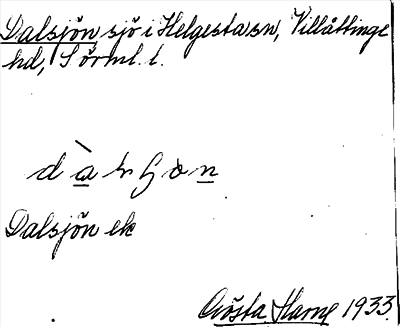 Dalsjön sjö i Helgesta sn, Villåttinge
hd, Sörml. l.
Dalsjön ek
Gösta Harne 1933.